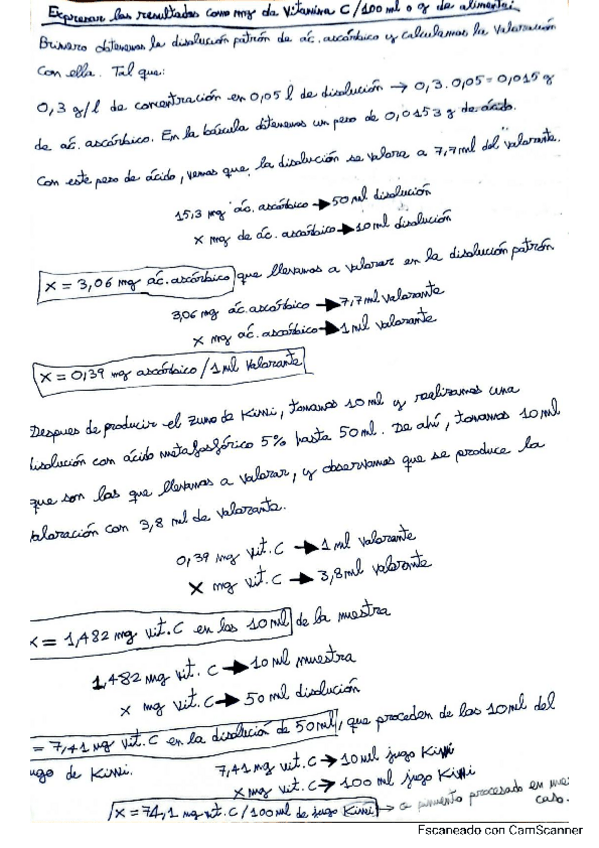 Expresar los resultados como mg de Vitamina C/100 ml o g de alimento.
Primero obtenemos la disolución patrón de ác. ascórbico y calculamos la valoración
con ella. Tal que:
0,3 g/l de concentración en 0,05 l de disolución → 0,3 · 0,05 = 0,015 g
de ác. ascórbico. En la báscula obtenemos un peso de 0,0153 g de ácido.
Con este peso de ácido, vemos que la disolución se valora a 7,7 ml del valorante.
15,3 mg ác. ascórbico → 50 ml disolución
x mg de ác. ascórbico → 10 ml disolución
x = 3,06 mg ác. ascórbico que llevamos a valorar en la disolución patrón
3,06 mg ác. ascórbico → 7,7 ml valorante
x mg ác. ascórbico → 1 ml valorante
x = 0,39 mg ascórbico / 1 ml valorante
Despues de producir el zumo de Kiwi, tomamos 10 ml y realizamos una
disolución con ácido metafosfórico 5% hasta 50 ml. De ahí, tomamos 10 ml
que son los que llevamos a valorar, y observamos que se produce la
valoración con 3,8 ml de valorante.
0,39 mg vit. C → 1 ml valorante
x mg vit. C → 3,8 ml valorante
x = 1,482 mg vit. C en los 10 ml de la muestra
1,482 mg vit. C → 10 ml muestra
x mg vit. C → 50 ml disolución
= 7,41 mg vit. C en la disolución de 50 ml, que proceden de los 10 ml del
ugo de Kiwi. 7,41 mg vit. C → 10 ml jugo Kiwi
x mg vit. C → 100 ml jugo Kiwi
x = 74,1 mg vit. C / 100 ml de jugo Kiwi → procesado en
caso.
Escaneado con CamScanner